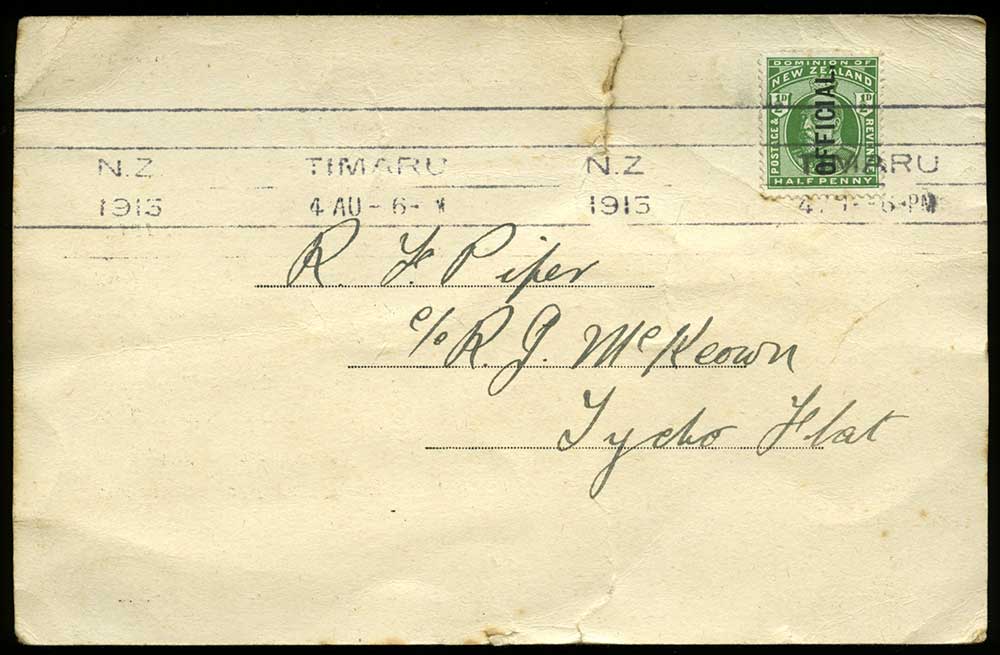 DOMINION OF
NEW ZEALAND
½D ½D
POSTAGE & REVENUE
OFFICIAL.
HALFPENNY
N.Z TIMARU N.Z TIMARU
1913 4 AU - 6- 1913 6-PM
R. F. Piper
c/o R. J. McKeown
Tycho Flat